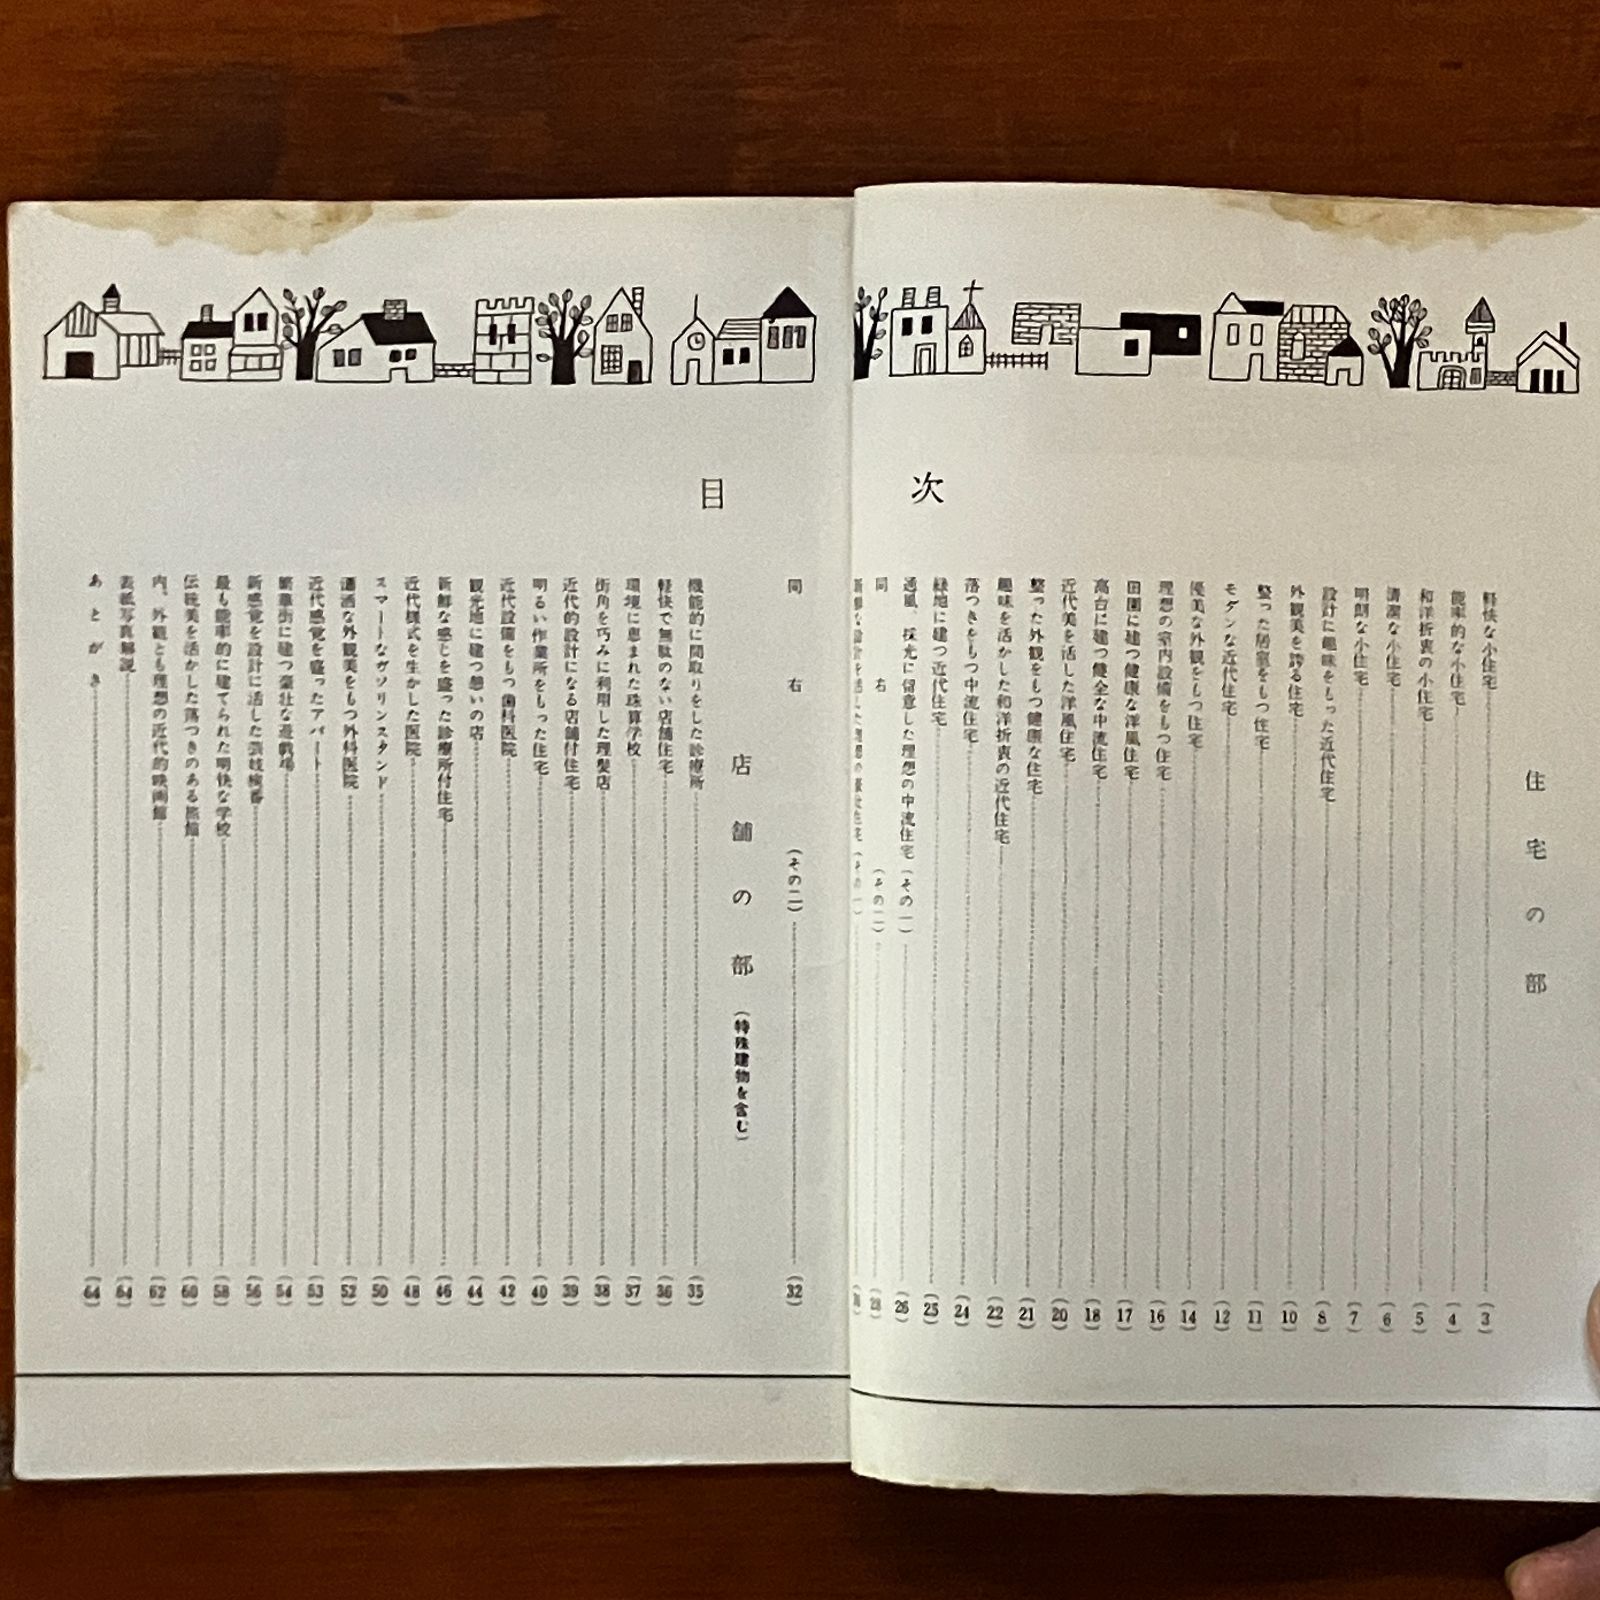 目次
住宅の部
軽快な小住宅(3)
能率的な小住宅(4)
和洋折衷の小住宅(5)
清潔な小住宅(6)
明朗な小住宅(7)
設計に趣味をもった近代住宅(8)
外観美を誇る住宅(10)
整った居室をもつ住宅(11)
モダンな近代住宅(12)
優美な外観をもつ住宅(14)
理想の室内設備をもつ住宅(16)
田園に建つ健康な洋風住宅(17)
高台に建つ健全な中流住宅(18)
近代美を活した洋風住宅(20)
整った外観をもつ健康な住宅(21)
趣味を活かした和洋折衷の近代住宅(22)
落つきをもつ中流住宅(24)
緑地に建つ近代住宅(25)
通風、採光に留意した理想の中流住宅(その一)(26)
同右(その二)(28)
(その一)
同右(その二)(32)
店舗の部(特殊建物を含む)
機能的に間取りをした診療所(35)
軽快で無駄のない店舗住宅(36)
環境に恵まれた珠算学校(37)
街角を巧みに利用した理髪店(38)
近代的設計になる店舗付住宅(39)
明るい作業所をもった住宅(40)
近代設備をもつ歯科医院(42)
観光地に建つ憩いの店(44)
新鮮な感じを盛った診療所付住宅(46)
近代様式を生かした医院(48)
スマートなガソリンスタンド(50)
瀟洒な外観美をもつ外科医院(52)
近代感覚を盛ったアパート(53)
繁華街に建つ豪壮な遊戯場(54)
新感覚を設計に活した芸妓検番(56)
最も能率的に建てられた明快な学校(58)
伝統美を活かした落つきのある旅館(60)
内、外観とも理想の近代的映画館(62)
表紙写真解説(64)
あとがき(64)